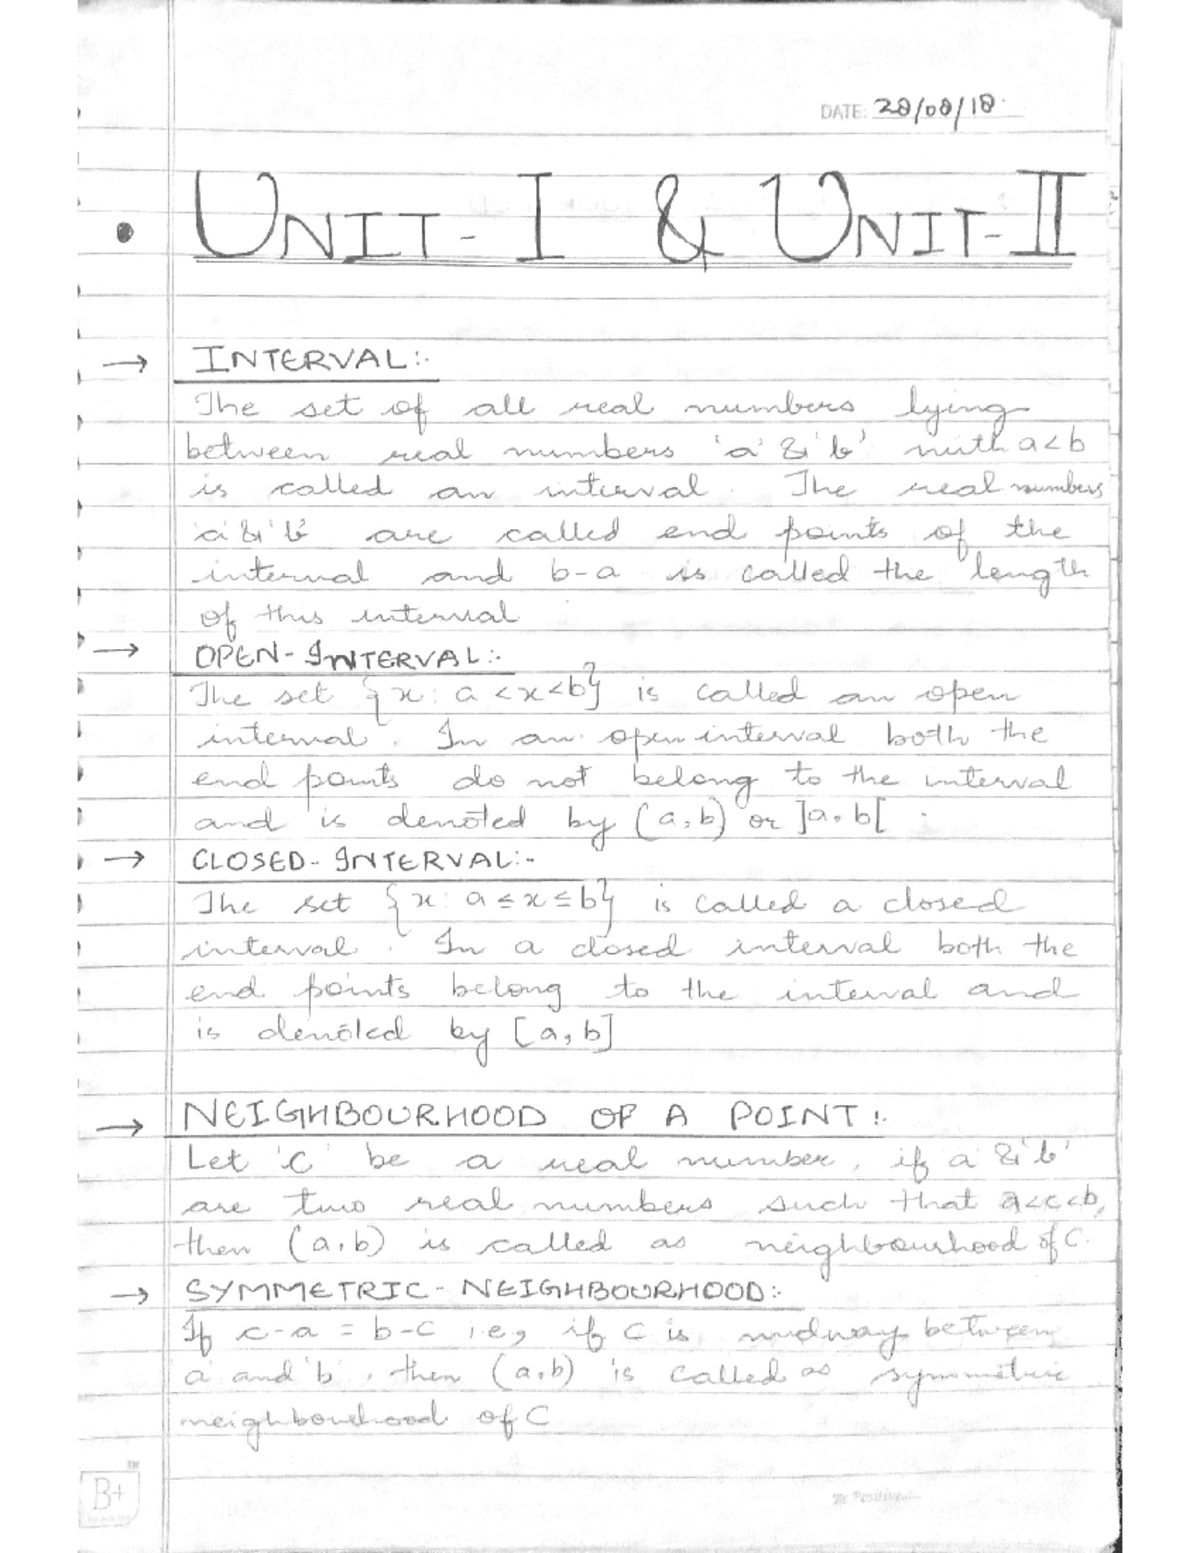 DATE: 28/08/18
• UNIT-I & UNIT-II
→ INTERVAL:-
The set of all real numbers lying
between real numbers 'a' & 'b' with a<b
is called an interval. The real numbers
'a' & 'b' are called end points of the
interval and b-a is called the length
of this interval
→ OPEN-INTERVAL:-
The set {x: a<x<b} is called an open
interval. In an open interval both the
end points do not belong to the interval
and is denoted by (a,b) or ]a,b[ .
→ CLOSED-INTERVAL:-
The set {x: a≤x≤b} is called a closed
interval. In a closed interval both the
end points belong to the interval and
is denoted by [a,b]
→ NEIGHBOURHOOD OF A POINT:-
Let 'c' be a real number, if a & 'b'
are two real numbers such that a<c<b,
then (a,b) is called as neighbourhood of C.
→ SYMMETRIC-NEIGHBOURHOOD:-
If c-a = b-c i.e, if C is midway between
a and 'b', then (a,b) is called as symmetric
neighbourhood of C
B+